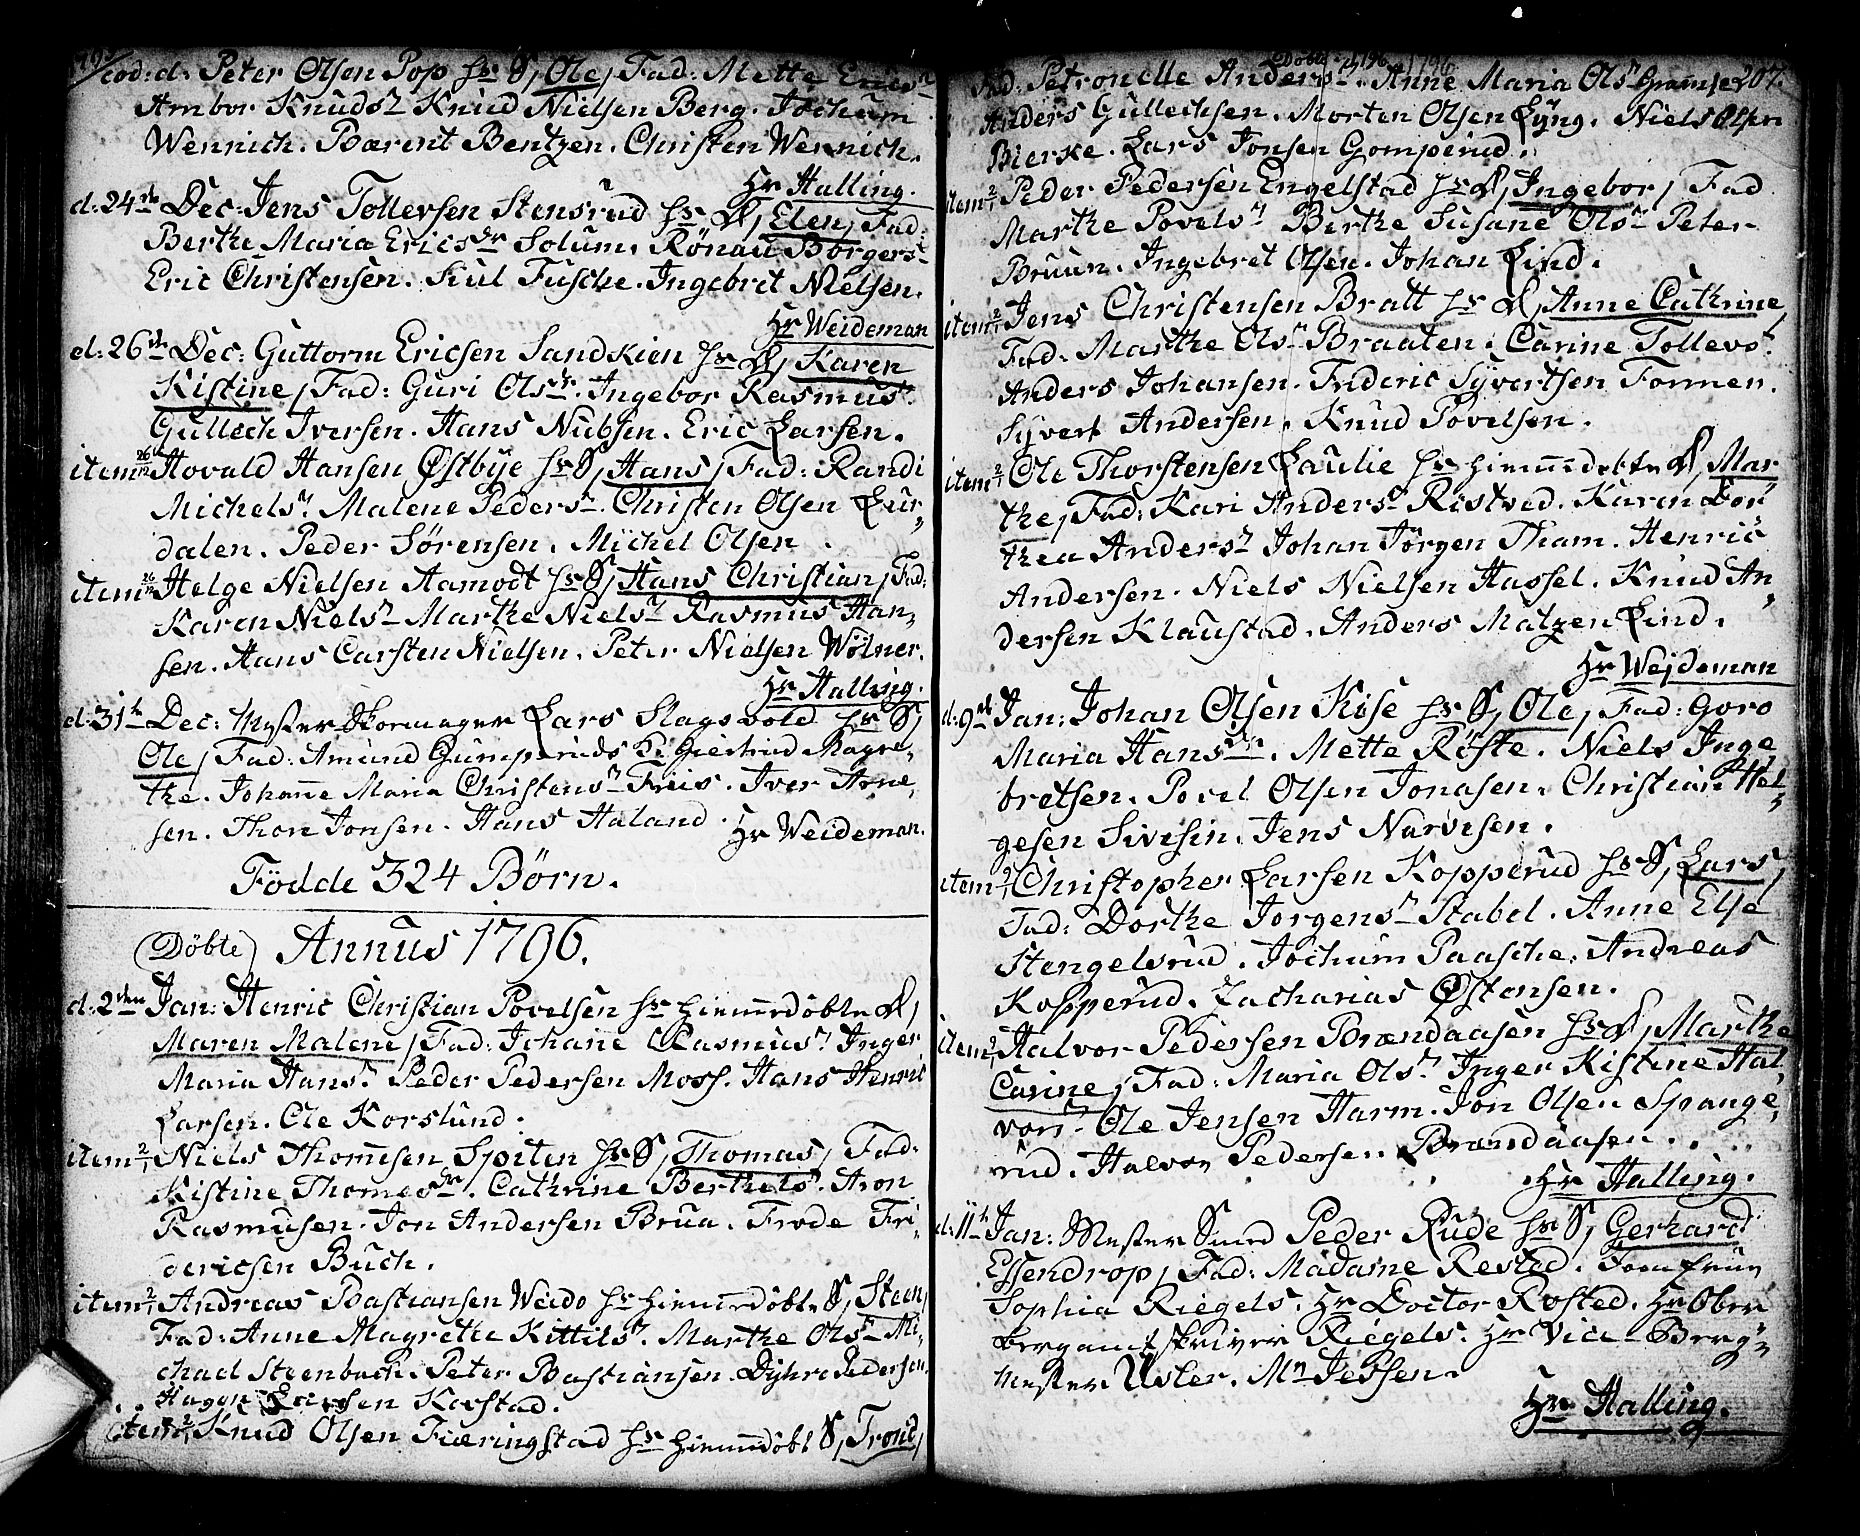 eod: d: Peter Olsen Pop hs: S, Ole, Fad: Mette
Ambor Knudsr Knud Nielsen Berg. Jochum
Wennich. Bærent Bentzen. Christen Wennich.
Hr Halling.
d: 24de Dec: Jens Tollersen Stensrud hs: D, Elen, Fad:
Berthe Maria Ericsdr Solum. Rönau Börgers:
Eric Christensen. Juul Fusche. Ingebret Nielsen.
Hr Weideman
d: 26de Dec: Guttorm Ericsen Sandkien hs: D, Karen
Kistine, Fad: Guri Olsdr. Ingebor Rasmus:
Gullech Iversen. Hans Nubsen. Eric Larsen.
item 26/12 Hovald Hansen Østbye hs: S, Hans, Fad: Randi
Michelsr Malene Pedersr. Christen Olsen Lur,,
dalen. Peder Sørensen. Michel Olsen.
item 26/12 Helge Nielsen Aamodt hs: S, Hans Christian, Fad:
Karen Nielsr Marthe Nielsr Rasmus Han,,
sen. Hans Carsten Nielsen. Peter Nielsen Wölner.
Hr Halling.
d: 31te Dec: Mester Skomager Lars Slagsvold hs: S,
Ole, Fad: Amund Gumperuds K: Giertrud Magre,,
the. Johanne Maria Christensr Freis. Iver Arne,,
sen. Thore Jonsen. Hans Haland.
Hr Weideman.
Födde 324 Børn.
(Döbte) Annus 1796.
d: 2den Jan: Henric Christian Povelsen hs: hiemmedöbte D,
Maren Malene, Fad: Johanne Rasmusr Inger
Maria Hansr Peder Pedersen Moss. Hans Henric
Larsen. Ole Korslund.
item 2/1 Niels Thomesen Spiten hs: S, Thomas, Fad:
Kistine Thomesdr. Cathrine Berthelsr. Aron
Rasmusen. Jon Andersen Brua. Frode Fri,,
dericsen Buch.
item 2/1 Andreas Bastiansen Weido hs: hiemmedöbte S, Steen,
Fad: Anne Magrette Kittilsr. Marthe Olsr Mi,,
chael Steenbuch. Peter Bastiansen. Dyhre Pedersen.
Hagen Larsen Korstad.
item 2/1 Knud Olsen Fiæringstad hs: hiemmdöbt S, Trond,
Döbte 1796 1796
207.
Fad: Petronelle Andersr. Anne Maria Olsr
Anders Gullechsen. Morten Olsen Lyng. Niels Olsen
Bierke. Lars Jonsen Gomperud.
item 2/1 Peder Pedersen Engelstad hs: D, Ingebor, Fad
Marthe Povelsr Birthe Susane Olsr Peter
Bruun. Ingebret Olsen. Johan Lind.
item 2/1 Jens Christensen Bratt hs: D, Anne Cathrine,
Fad: Marthe Olsr Braaten. Carine Tollevsr.
Anders Johansen. Frideric Syvertsen Formen.
Syvert Andersen. Knud Povelsen.
item 2/1 Ole Thorstensen Laulie hs: hiemmedøbte D, Mar
the, Fad: Kari Andersr Ristved. Karen Dor
thea Andersr Johan Jörgen Tham. Henric
Andersen. Niels Nielsen Hassel. Knud An,,
dersen Klaustad. Anders Matzen Lind.
Hr Wejdeman
d: 9de Jan: Johan Olsen Kise hs: S, Ole, Fad: Goro
Maria Hansdr. Mette Röste. Niels Inge
bretsen. Povel Olsen Jonasen. Christian Hel,,
gesen Sivesin. Jens Narvesen.
item 9/1 Christopher Larsen Kopperud hs: S, Lars,
Fad: Dorthe Jorgensr Stabel. Anne Else
Stengelsrud. Jochum Paasche. Andreas
Kopperud. Zacharias Østensen.
item 9/1 Halvor Pedersen Brændaasen hs: D, Marthe
Carine, Fad: Maria Olsr Inger Kistine Hal,,
vorsr. Ole Jensen Harm. Jon Olsen Spange,,
rud. Halvor Pedersen Brændaasen.
Hr Halling.
d: 11te Jan: Mester Smed Peder Rude hs: S, Gerhard
Essendrop, Fad: Madame Rested. Jomfrue
Sophia Riegels. Hr Doctor Rosted. Hr Ober
bergamtskriver Riegels. Hr Vice Berg,,
mester Üster. Mr Jessen.
Hr Halling.